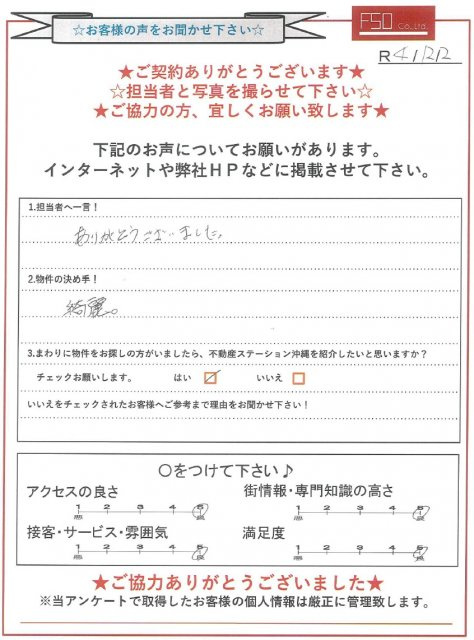 ☆お客様の声をお聞かせ下さい☆
FSO
Co.,Ltd.
R4/12/2
★ご契約ありがとうございます★
☆担当者と写真を撮らせて下さい☆
★ご協力の方、宜しくお願い致します★
下記のお声についてお願いがあります。
インターネットや弊社HPなどに掲載させて下さい。
1.担当者へ一言！
ありがとうございました。
2.物件の決め手！
綺麗。
3.まわりに物件をお探しの方がいましたら、不動産ステーション沖縄を紹介したいと思いますか？
チェックお願いします。 はい ☑ いいえ □
いいえをチェックされたお客様へご参考まで理由をお聞かせ下さい！
〇をつけて下さい♪
アクセスの良さ 街情報・専門知識の高さ
1 2 3 4 5 1 2 3 4 5
悪 良 悪 良
接客・サービス・雰囲気 満足度
1 2 3 4 5 1 2 3 4 5
悪 良 悪 良
★ご協力ありがとうございました★
※当アンケートで取得したお客様の個人情報は厳正に管理致します。